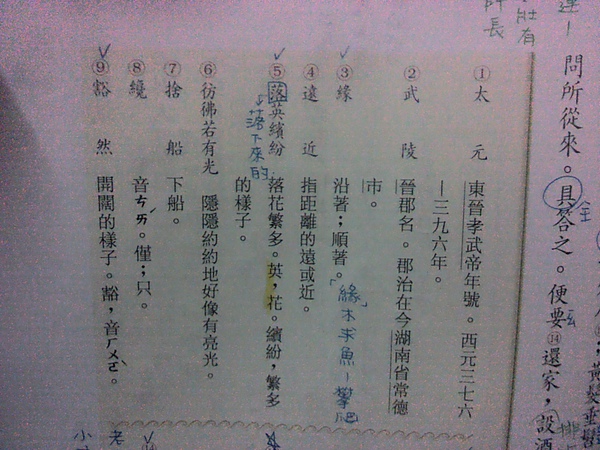 問所從來。具答之。便要⑭還家，設酒
全
黃髮垂髫
師長
①太元 東晉孝武帝年號。西元三七六
—三九六年。
②武陵 晉郡名。郡治在今湖南省常德
市。
③緣 沿著；順著。「緣木求魚—攀爬
④遠近 指距離的遠或近。
⑤落英繽紛 落花繁多。英，花。繽紛，繁多
的樣子。
落下來的
⑥彷彿若有光 隱隱約約地好像有亮光。
⑦捨船 下船。
⑧纔 音ㄘㄞˊ。僅；只。
⑨豁然 開闊的樣子。豁，音ㄏㄨㄛˋ。